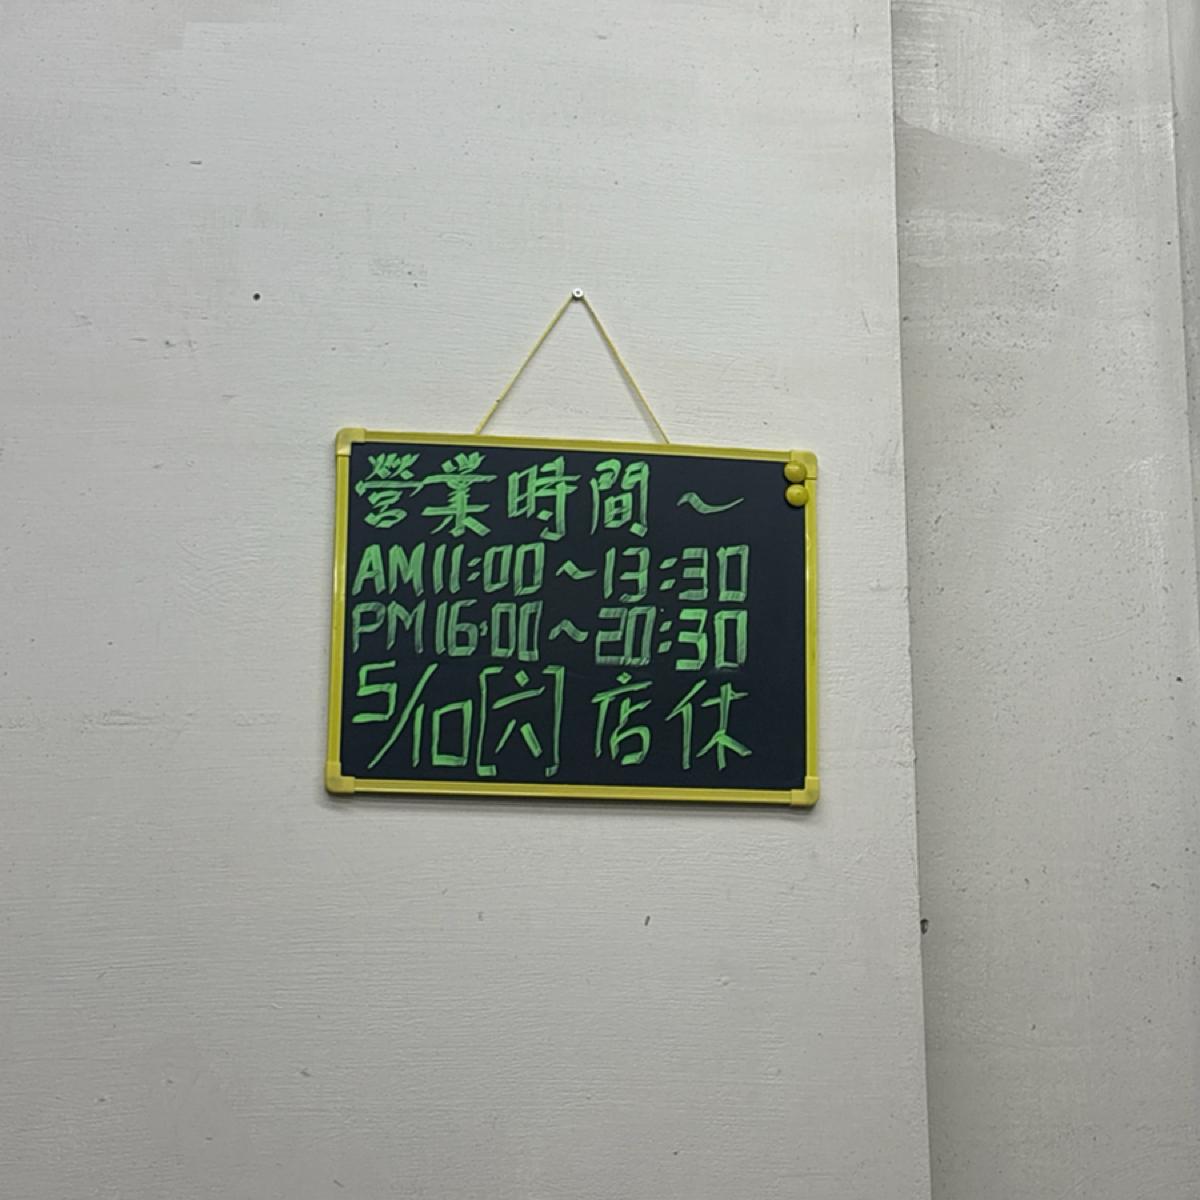 營業時間～
AM11:00～13:30
PM16:00～20:30
5/10[六]店休